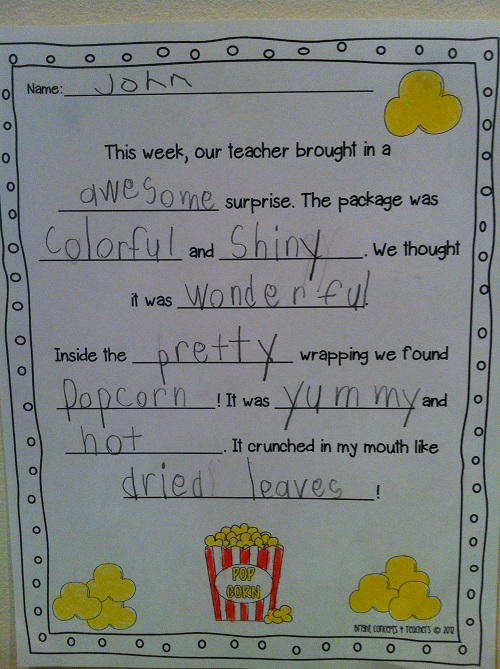 Name: John
This week, our teacher brought in a
awesome surprise. The package was
Colorful and Shiny. We thought
it was wonderful.
Inside the pretty wrapping we found
Popcorn! It was yummy and
hot. It crunched in my mouth like
dried leaves!
POP
CORN
Bright Concepts 4 Teachers © 2012